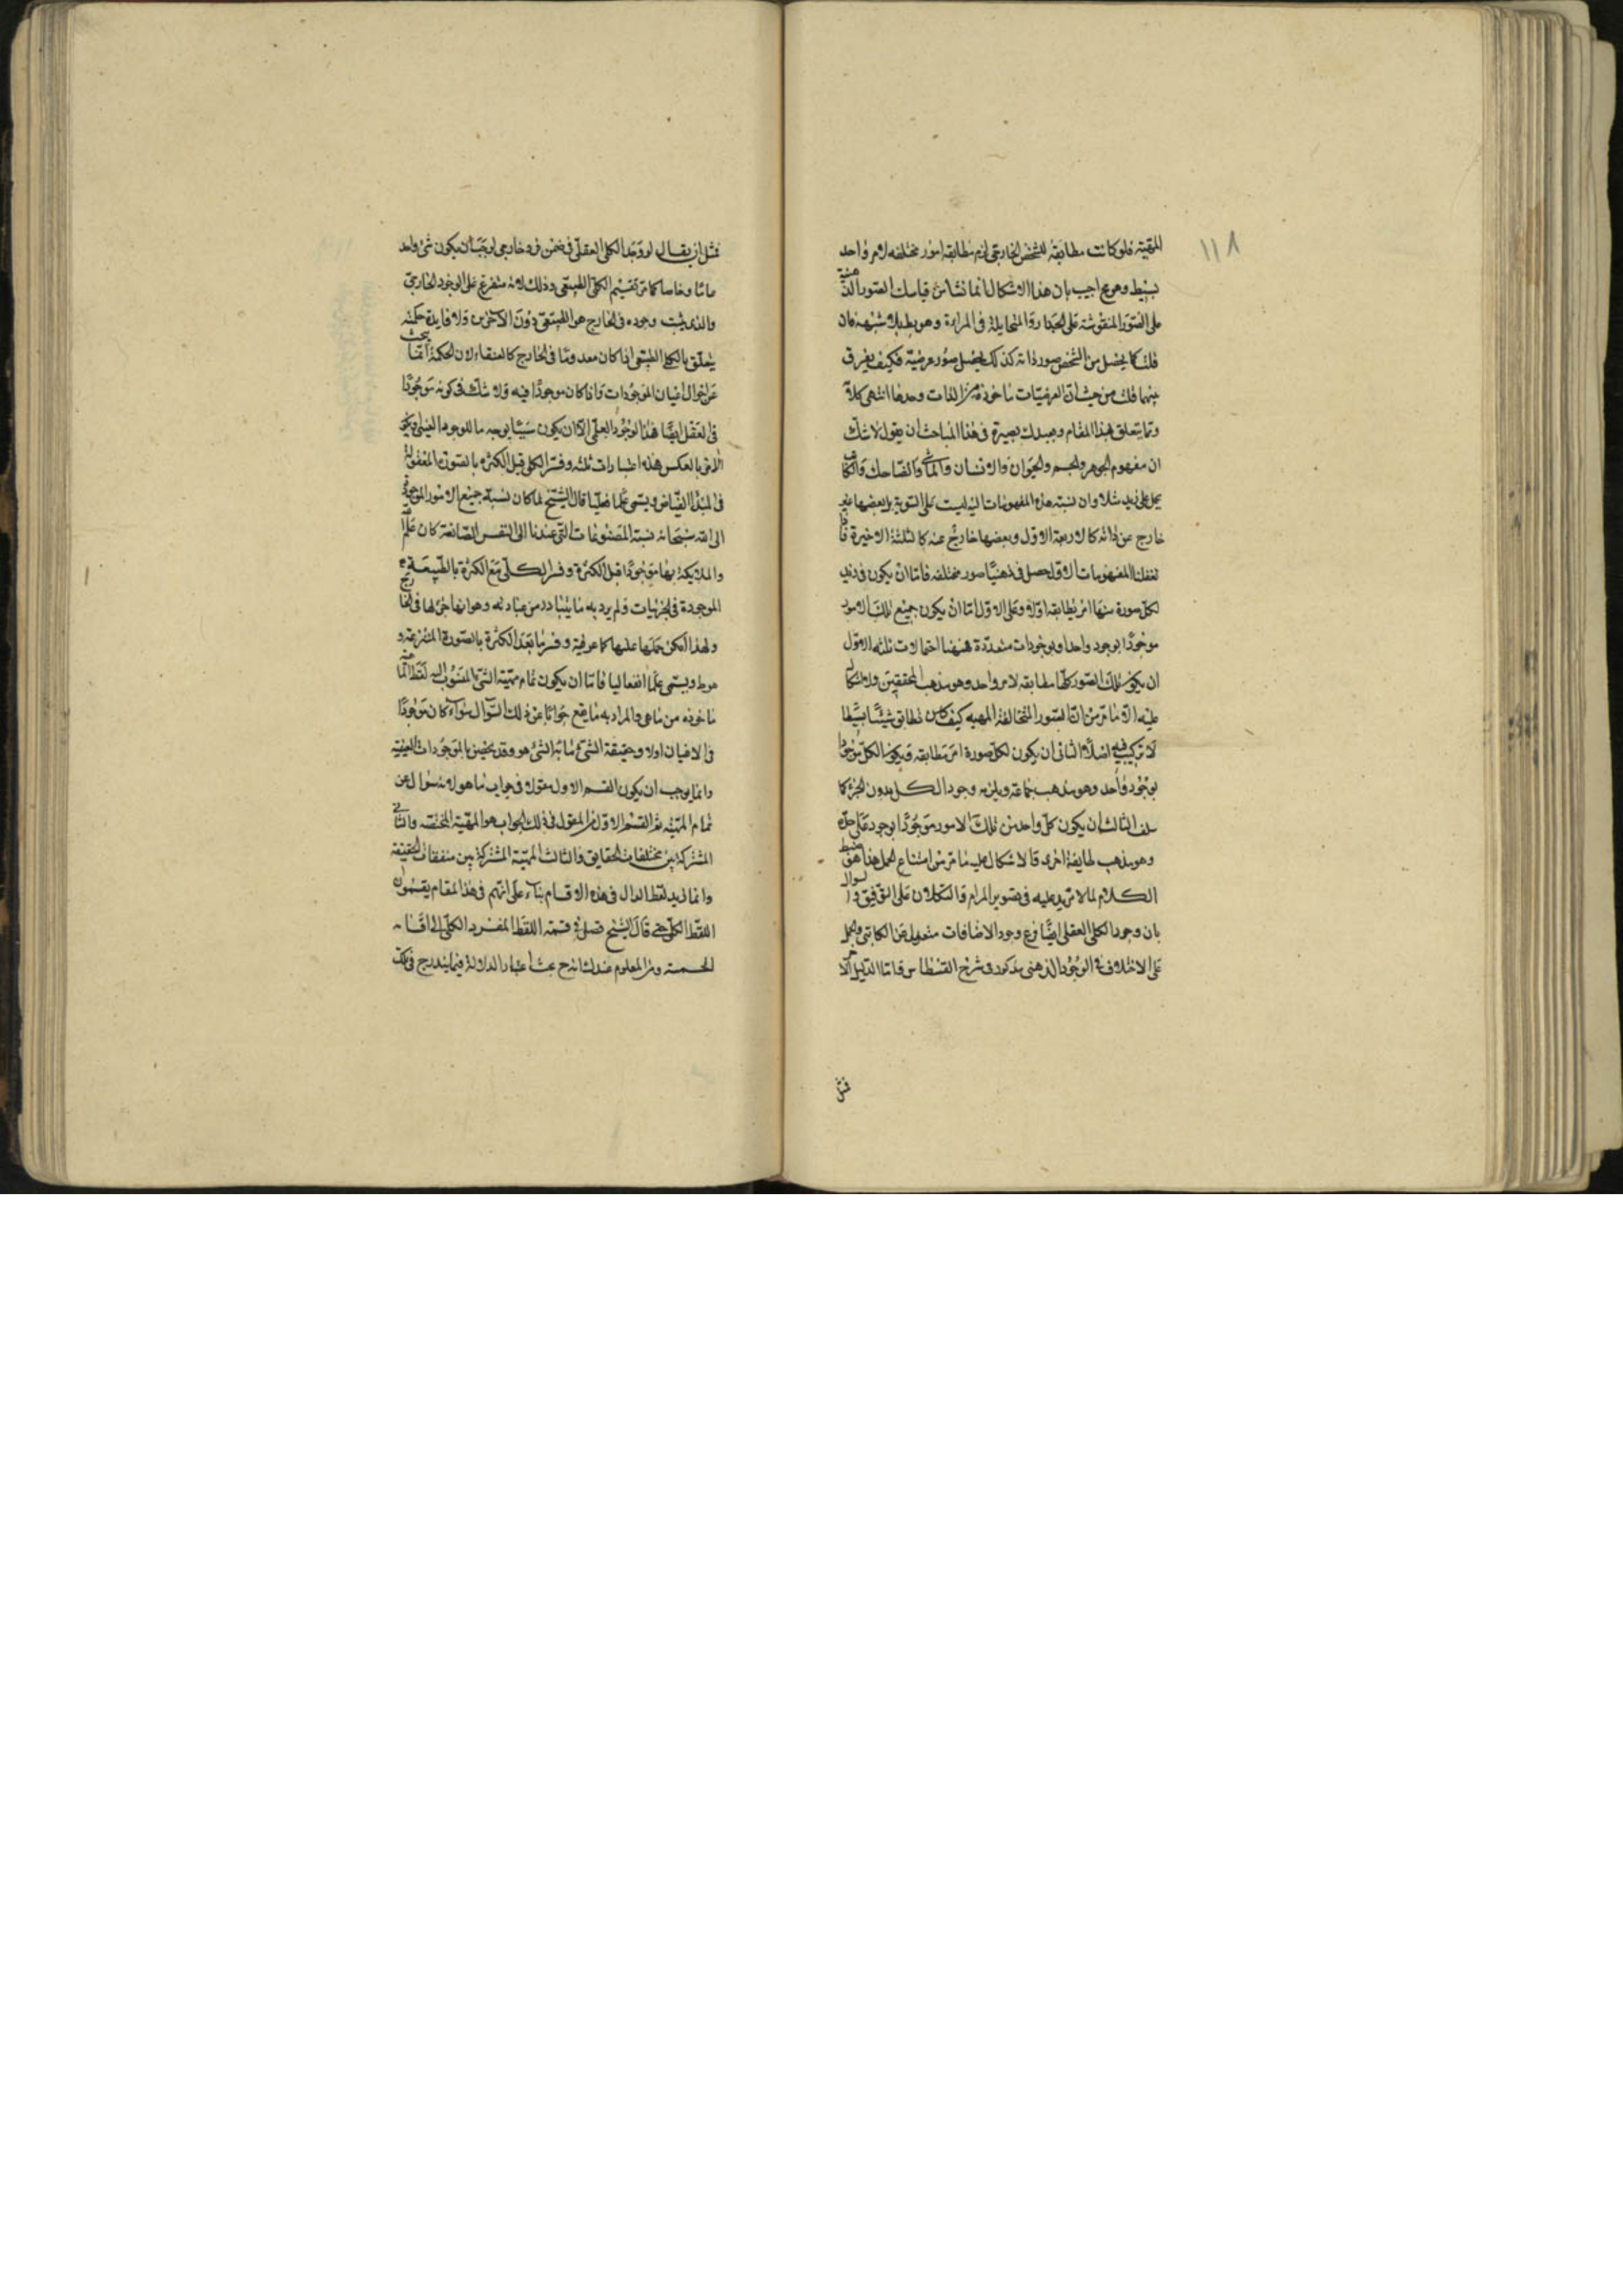 ١١٨
المهية فلو كانت مطابقة للشخص الخارجي لزم مطابقة امور مختلفة لامر واحد
بسيط وهو مح اجيب بان هذا الاشكال انما نشا من قياسك الصور الذهنية
على الصور المنقوشة على الجدار والمتخايلة في المراة وهو بط بلا شبهة فان
قلت كما يحصل من الشخص صور ذاته كذلك يحصل صور عرضية فكيف يفرق
بينهما قلت من حيث ان العرضيات ماخوذة من الذات وحدها انتهى كلامه
ومما يتعلق بهذا المقام ويفيدك بصيرة في هذا المباحث ان يقول لا شك
ان مفهوم الجوهر والجسم والحيوان والانسان والماشي والضاحك والكاتب
يحمل على زيد مثلا وان نسبة هذه المفهومات اليه ليست على السوية بل بعضها غير
خارج عن ذاته كالاربعة الاول وبعضها خارج عنه كالثلثة الاخيرة فاذا
تعقلنا المفهومات الاول حصل في ذهننا صور مختلفة فاما ان يكون في زيد
لكل صورة منها امر يطابقه اولا وعلى الاول اما ان يكون جميع تلك الامور
موجودا بوجود واحد او بوجودات متعددة فههنا احتمالات ثلثة الاول
ان يكون تلك الصور كلها مطابقة لامر واحد وهو مذهب المحققين ولا اشكال
عليه الا ما مر من ان الصور المتخالفة المهية كيف تطابق شيئا بسيطا
لا تركيب فيه اصلا الثاني ان يكون لكل صورة امر مطابقه ويكون الكل موجودا
بوجود واحد وهو مذهب جماعة ويلزمه وجود الكل بدون الجزء كما
سلف الثالث ان يكون كل واحد من تلك الامور موجودا بوجود على حدة
وهو مذهب طايفة اخرى فالاشكال عليه ما مر من امتناع الحمل هذا هو ضبط
الكلام لما لا مزيد عليه في تصوير المرام والتكلان على التوفيق
بان وجود الكلي العقلي ايضا فرع وجود الاضافات منقول عن الكاتبي
على الاختلاف في الوجود الذهني مذكور في شرح القسطاس فاما الدليل
فمثل
فمثل ان يقال لو وجد الكلي العقلي في ضمن فرد خارجي لوجب ان يكون شيء واحد
عاما وخاصا كما مر تقسيم الكلي الطبيعي وذلك لانه متفرع على الوجود الخارجي
والذي يثبت وجوده في الخارج هو الطبيعي دون الآخرين ولا فايدة حكمية
يتعلق بالكلي الطبيعي اذا كان معدوما في الخارج كالعنقاء لان الحكمة انما يبحث
عن احوال اعيان الموجودات واذا كان موجودا فيه ولا شك في كونه موجودا
في العقل ايضا فهذا الوجود العقلي اما ان يكون سببا بوجه ما للوجود العيني ويكون
الامر بالعكس هذه اعتبارات ثلثة وفسر الكلي قبل الكثرة بالصورة المعقولة
في المبدأ الفياض ويسمى علما فعليا قال الشيخ لما كان نسبة جميع الامور الموجودة
الى الله سبحانه نسبة المصنوعات التي عندنا الى النفس الصانعة كان علم الله
والملائكة بها موجودا قبل الكثرة وفسر الكلي مع الكثرة بالطبيعة
الموجودة في الجزئيات ولم يرد به ما يتبادر من عبارته وهو انها جزء لها في الخارج
ولهذا امكن حملها عليها كما عرفته وفسر ما بعد الكثرة بالصورة المنتزعة
ويسمى علما انفعاليا فاما ان يكون تمام مهية الشيء المنسوب اليه لفظ المائية
ماخوذة من ما هي والمراد به ما يقع جوابا عن ذلك السؤال سواء كان موجودا
في الاعيان اولا وحقيقة الشيء ما به الشيء هو وقد يخص بالموجودات العينية
وانما يوجب ان يكون القسم الاول مقولا في جواب ما هو لانه سؤال عن
تمام المهية ثم القسم الاول من المقول في ذلك الجواب هو المهية المختصة والثاني
المشتركة بين مختلفات الحقايق والثالث المهية المشتركة بين متفقات الحقيقة
وانما لفظ الدال في هذه الاقسام بناء على انهم في هذا المقام يقسمون
اللفظ الكلي قال الشيخ فصل في قسمة اللفظ المفرد الكلي الى اقسامه
الخمسة ومن المعلوم عندك انه ح اعتبار الدلالة فيما يندرج في تلك